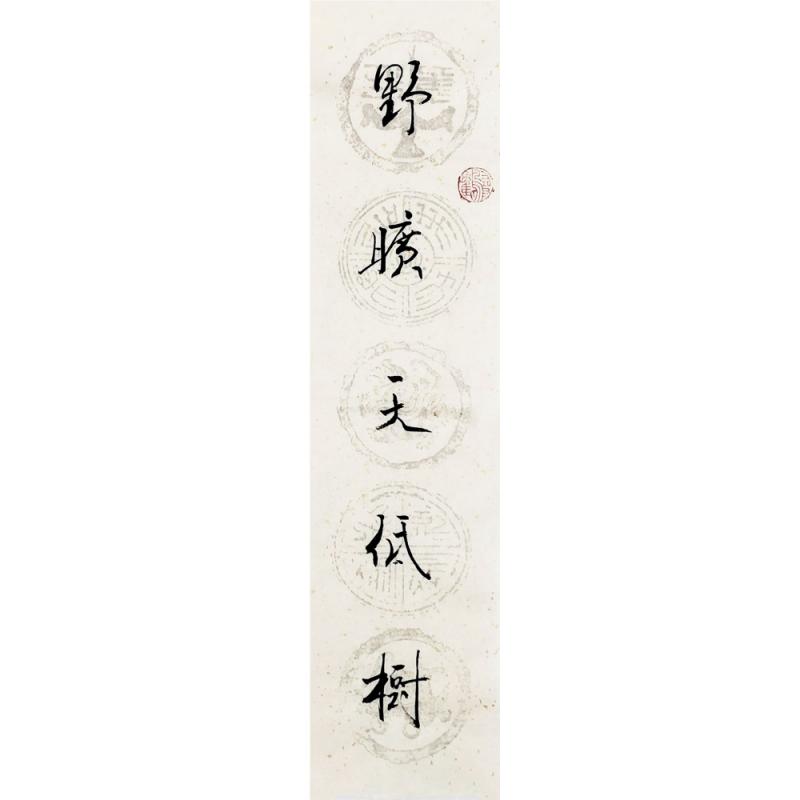 野曠天低樹